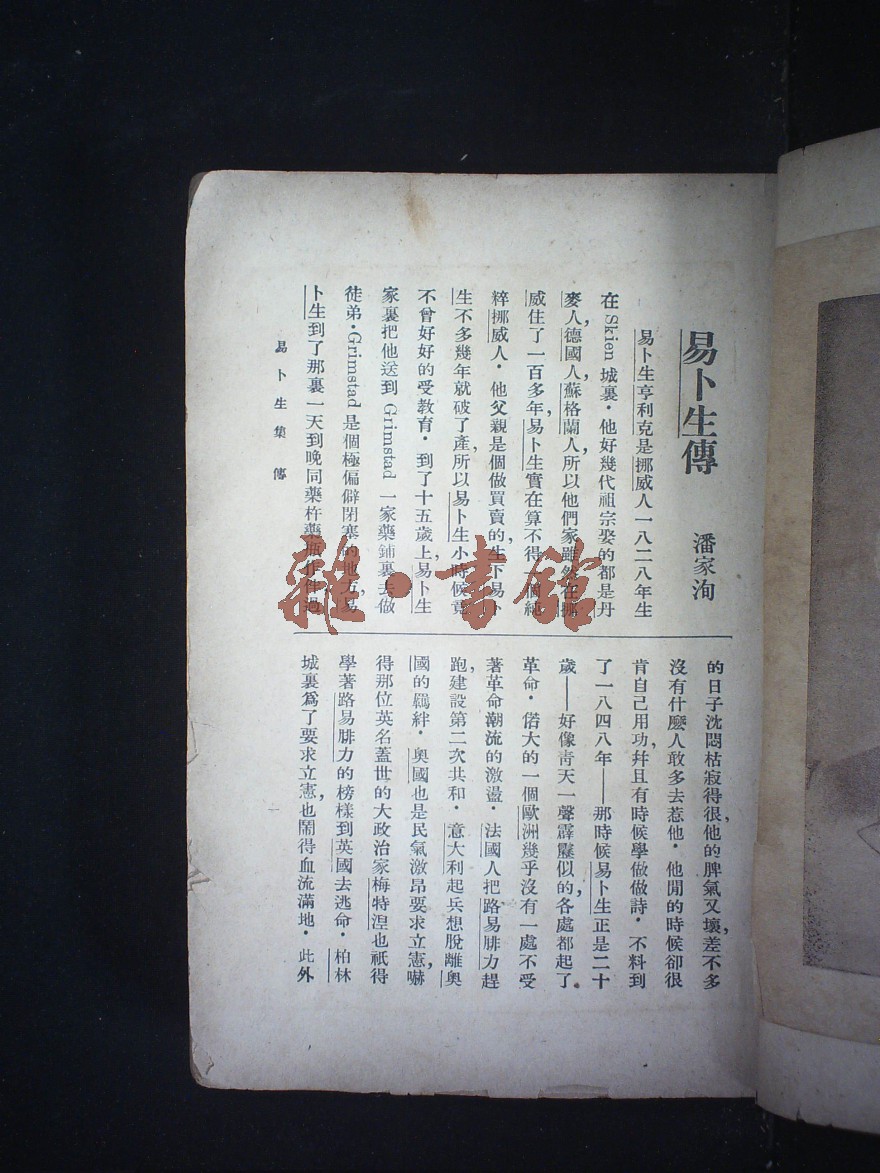 易卜生傳
潘家洵
易卜生亨利克是挪威人一八二八年生
在 Skien 城裏．他好幾代祖宗娶的都是丹
麥人，德國人，蘇格蘭人，所以他們家雖然在挪
威住了一百多年，易卜生實在算不得一個純
粹挪威人．他父親是個做買賣的，生下易卜
生不多幾年就破了產，所以易卜生小時候竟
不曾好好的受教育．到了十五歲上，易卜生
家裏把他送到 Grimstad 一家藥鋪裏去做
徒弟．Grimstad 是個極偏僻閉塞的地方，易
卜生到了那裏一天到晚同藥杵藥瓶作伴過
的日子沈悶枯寂得很，他的脾氣又壞，差不多
沒有什麼人敢多去惹他．他閒的時候卻很
肯自己用功，并且有時候學做做詩．不料到
了一八四八年——那時候易卜生正是二十
歲——好像青天一聲霹靂似的，各處都起了
革命．偌大的一個歐洲幾乎沒有一處不受
著革命潮流的激盪．法國人把路易腓力趕
跑，建設第二次共和．意大利起兵想脫離奧
國的羈絆．奧國也是民氣激昂要求立憲，嚇
得那位英名蓋世的大政治家梅特涅也祇得
學著路易腓力的榜樣到英國去逃命．柏林
城裏爲了要求立憲，也鬧得血流滿地．此外
易卜生集　傳
一
雜·書館